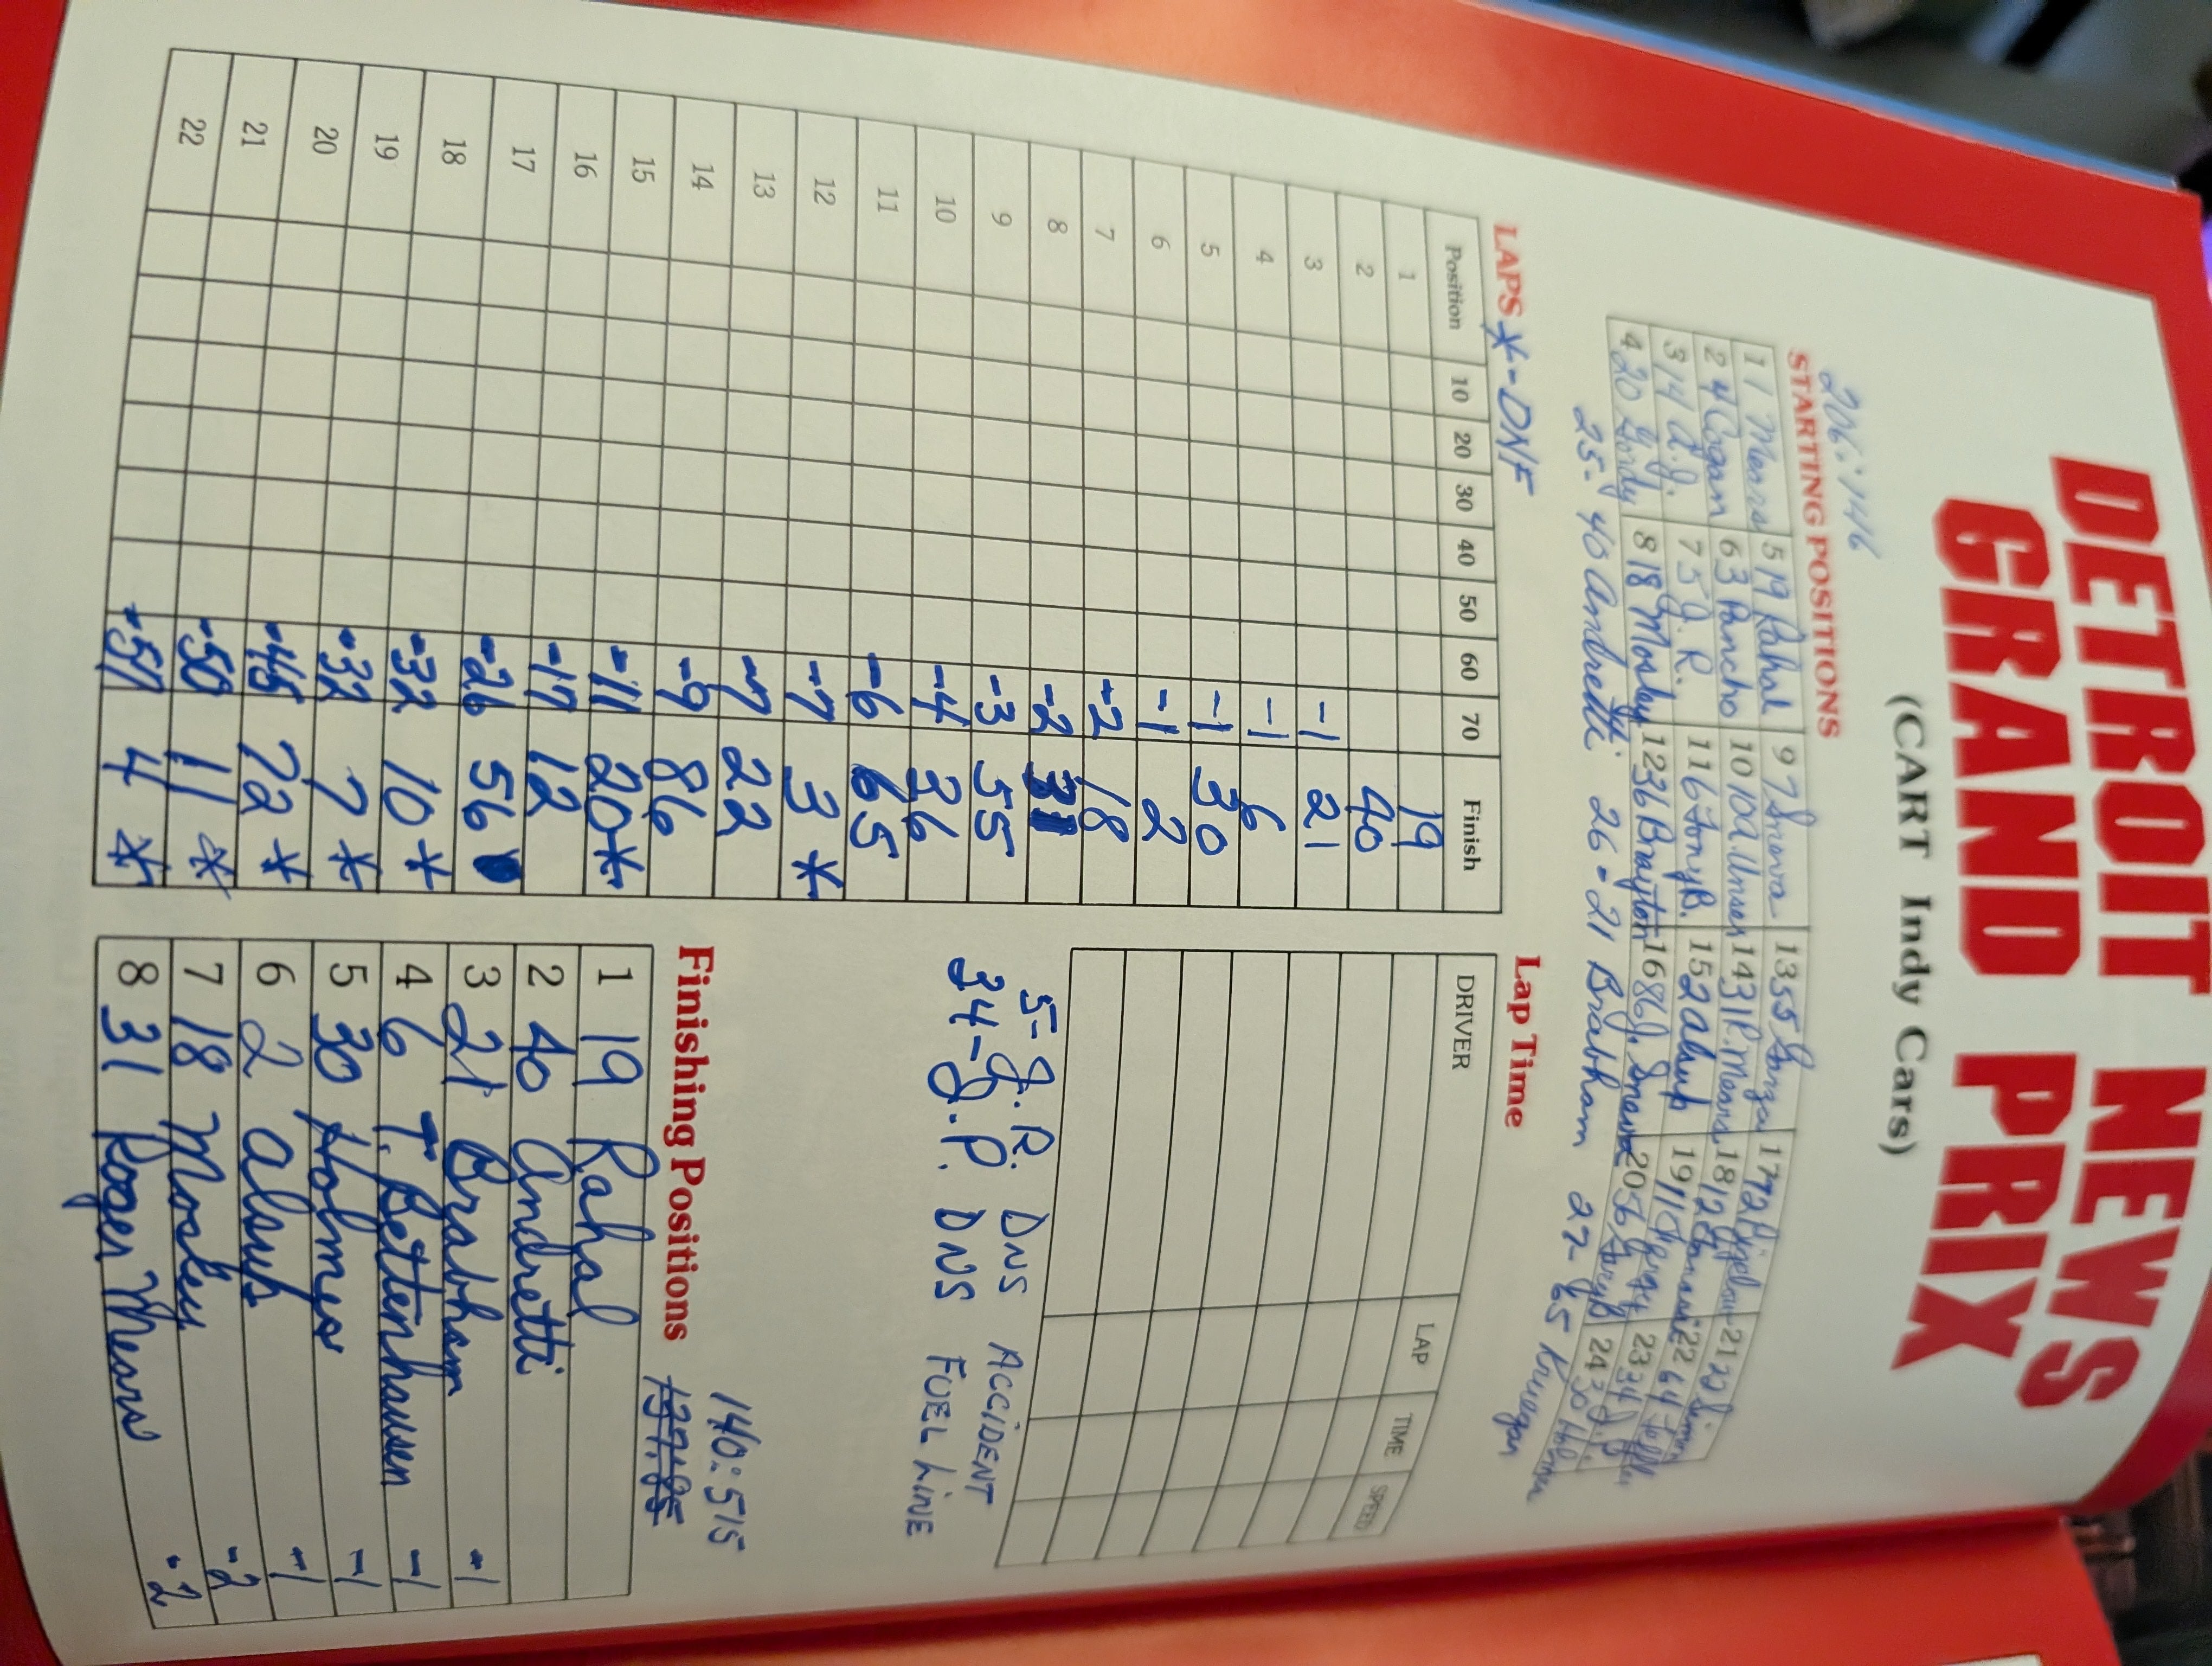 DETROIT NEWS
GRAND PRIX
(CART Indy Cars)
206.146
STARTING POSITIONS
1 1 Mears 5 19 Rahal 9 7 Sneva 13 55 Garza 17 72 21 22
2 4 Cogan 6 3 Pancho 10 10 Al Unser 14 31 R. Mears 18 12 22 64
3 14 A.J. 7 5 J.R. 11 6 Tony B. 15 2 Alsup 19 11 23 34 J.P.
4 20 Gordy 8 18 Mosley 12 36 Brayton 16 86 J. Sneva 20 56 Gary B 24 30 Holmes
25- 40 Andretti 26-21 Brabham 27-65 Kneegan
LAPS *-DNF
Position 10 20 30 40 50 60 70 Finish
1 19
2 40
3 -1 21
4 -1 6
5 -1 30
6 -1 2
7 -2 18
8 -2 31
9 -3 55
10 -4 36
11 -6 65
12 -7 3 *
13 -7 22
14 -9 86
15 -11 20*
16 -17 12
17 -26 56
18 -32 10*
19 -32 7*
20 -45 72*
21 -50 11*
22 -51 4 *
Lap Time
DRIVER LAP TIME SPEED
5-J.R. DNS ACCIDENT
34-J.P. DNS FUEL LINE
140.:515
Finishing Positions 137.185
1 19 Rahal
2 40 Andretti
3 21 Brabham -1
4 6 T. Bettenhausen -1
5 30 Holmes -1
6 2 Alsup -1
7 18 Mosley -2
8 31 Roger Mears -2